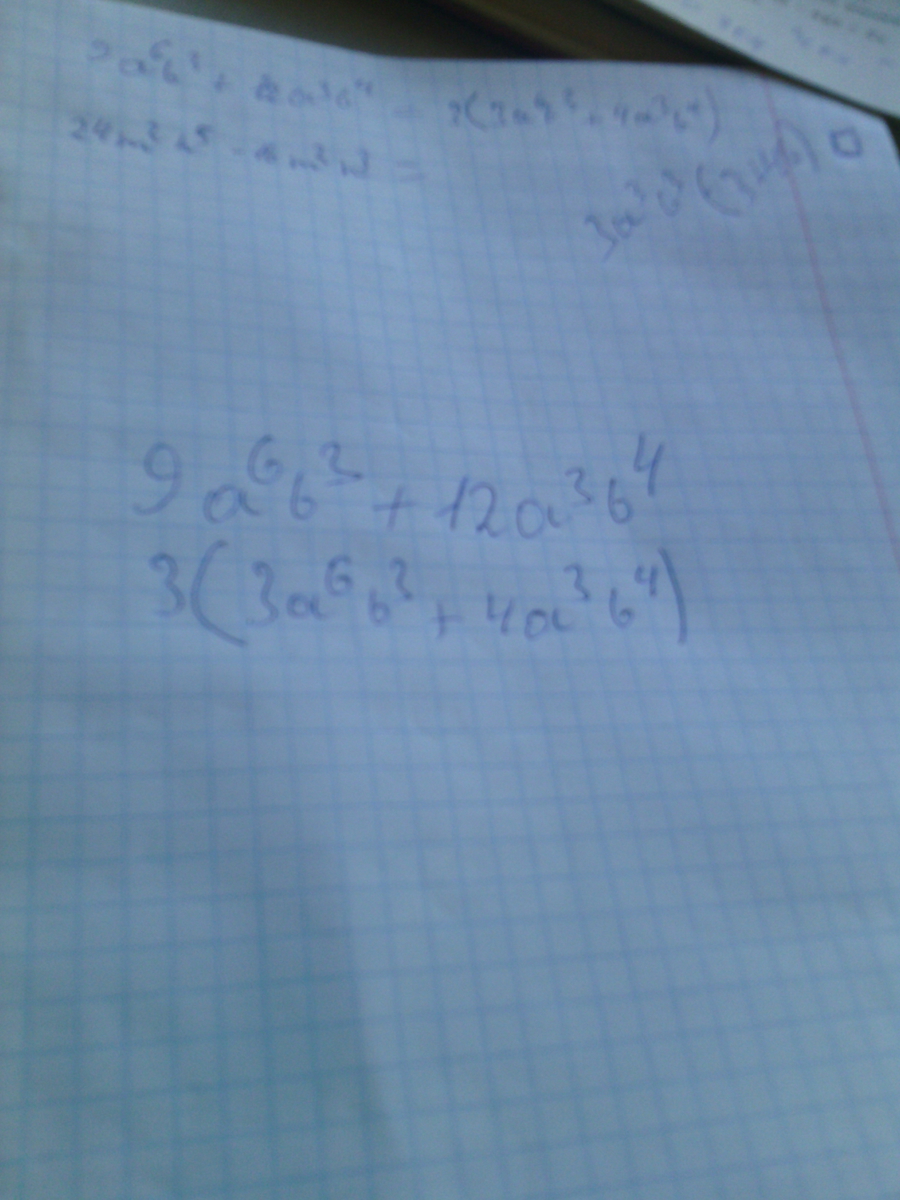 9a⁶b³ + 12a³b⁴ = 3(3a⁶b³ + 4a³b⁴)
24m³n⁵ - m²n³ =
3a³b³(3
9a⁶b³ + 12a³b⁴
3(3a⁶b³ + 4a³b⁴)